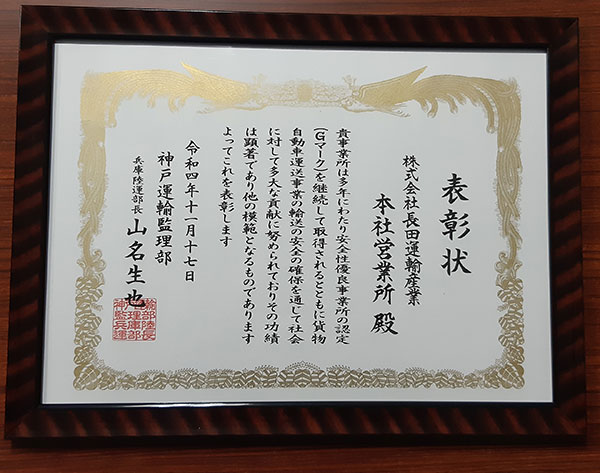 表彰状
株式会社長田運輸産業
本社営業所 殿
貴事業所は多年にわたり安全性優良事業所の認定
(Gマーク)を継続して取得されるとともに貨物
自動車運送事業の輸送の安全の確保を通じて社会
に対して多大な貢献に努められておりその功績
は顕著であり他の模範となるものであります
よってこれを表彰します
令和四年十一月十七日
神戸運輸監理部
兵庫陸運部長 山名生也